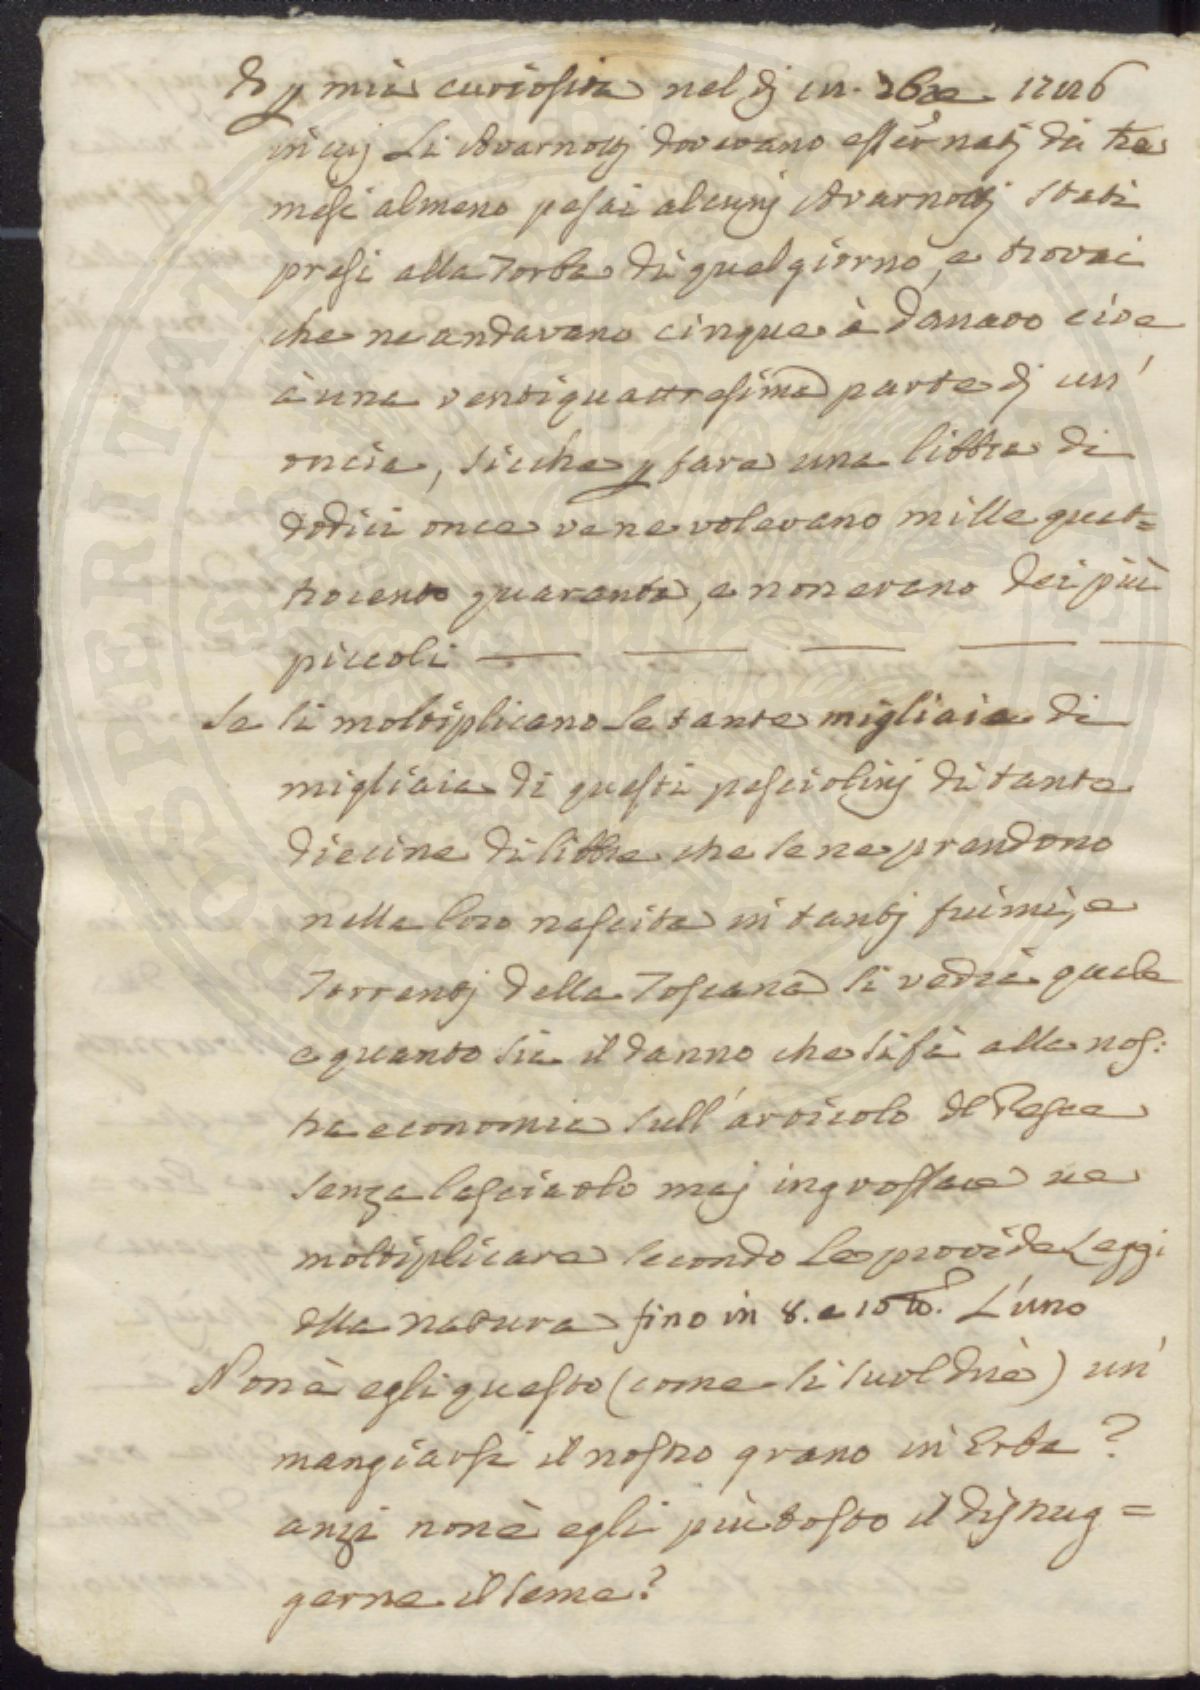 Io p mia curiosita nel dj in. 7bre 1746
in cuj Li Avarnotj dovevano esser natj da tre
mesi almeno pesai alcunj Avarnotj stati
presi alla Torba di quel giorno, e trovai
che ne andavano cinque à danaro cioe
à una ventiquattresima parte dj un'
oncia, sicche p fare una libbra di
dodici once ve ne volevano mille quat=
trocento quaranta, e non erano dei più
piccoli
Se si moltiplicano le tante migliaia di
migliaia di questi pesciolinj di tante
diecine di libbre che se ne prendono
nella loro nascita in tantj fiumi, e
Torrentj della Toscana si vedrà quale
e quanto sia il danno che si fà alla nos:
tra economia sull'articolo del Pesce
senza lasciarlo maj ingrossare ne
moltiplicare secondo le provide Leggi
della natura fino in 8. e 10 L'uno
Non è egli questo (come si suol dire) un'
mangiarsi il nostro grano in Erba?
anzi non è egli più tosto il distrug=
gerne il seme?
PROSPERITATI PUB